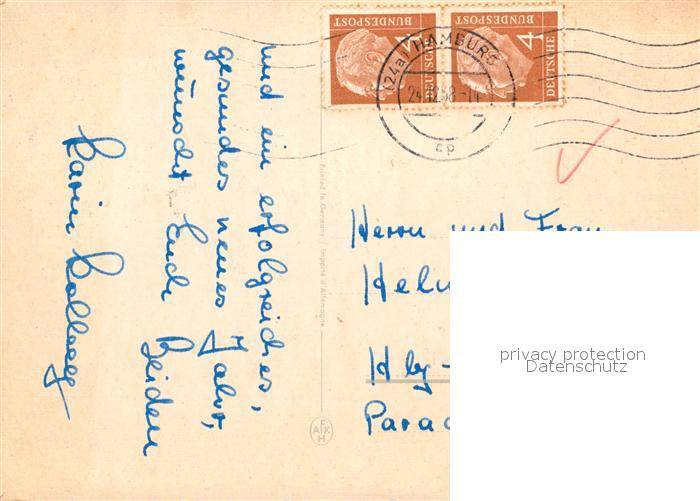 und ein erfolgreiches,
gesundes neues Jahr,
wünscht Euch Beiden
Karin
Printed in Germany / Imprimé d'Allemagne
AFKH
DEUTSCHE
BUNDESPOST
4
DEUTSCHE
BUNDESPOST
4
(24a) HAMBURG
24.12.58
cp
Herrn und Frau
Helm
Hbg-
Parad
privacy protection
Datenschutz